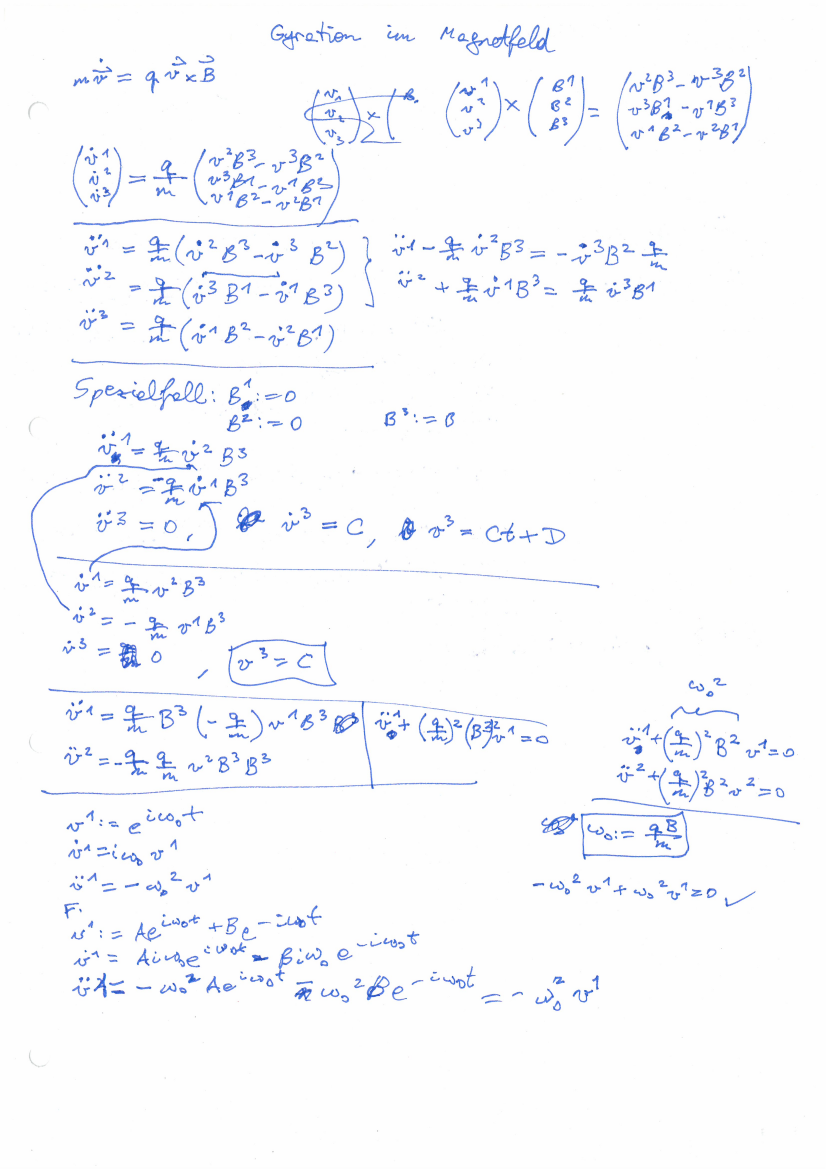 Gyration im Magnetfeld
m v⃗̇ = q v⃗ × B⃗
(v₁ v₂ v₃) × ( B. (v¹ v² v³) × (B¹ B² B³) = (v²B³ - v³B² v³B¹ - v¹B³ v¹B² - v²B¹)
(v̇¹ v̇² v̇³) = q/m (v²B³ - v³B² v³B¹ - v¹B³ v¹B² - v²B¹)
v̈¹ = q/m (v̇² B³ - v̇³ B²) } v̈¹ - q/m v̇²B³ = - v̇³B² q/m
v̈² = q/m (v̇³ B¹ - v̇¹B³) v̈² + q/m v̇¹B³ = q/m v̇³B¹
v̈³ = q/m (v̇¹ B² - v̇²B¹)
Spezialfall: B¹ := 0
B² := 0 B³ := B
v̈¹ = q/m v̇² B³
v̈² = - q/m v̇¹B³
v̈³ = 0, v̇³ = C, v³ = Ct + D
v̇¹ = q/m v²B³
v̇² = - q/m v¹B³
v̇³ = 0 , v³ = C
v̈¹ = q/m B³ (- q/m) v¹B³ v̈¹ + (q/m)² (B³)² v¹ = 0
v̈² = - q/m q/m v²B³B³
ω₀²
v̈¹ + (q/m)² B² v¹ = 0
v̈² + (q/m)² B² v² = 0
ω₀ := qB/m
- ω₀² v¹ + ω₀² v¹ = 0 ✓
v¹ := e^{iω₀t}
v̇¹ = iω₀ v¹
v̈¹ = - ω₀² v¹
F.
v¹ := Ae^{iω₀t} + Be^{-iω₀t}
v̇¹ = Aiω₀e^{iω₀t} - Biω₀ e^{-iω₀t}
v̈¹ = - ω₀² Ae^{iω₀t} - ω₀² Be^{-iω₀t} = - ω₀² v¹